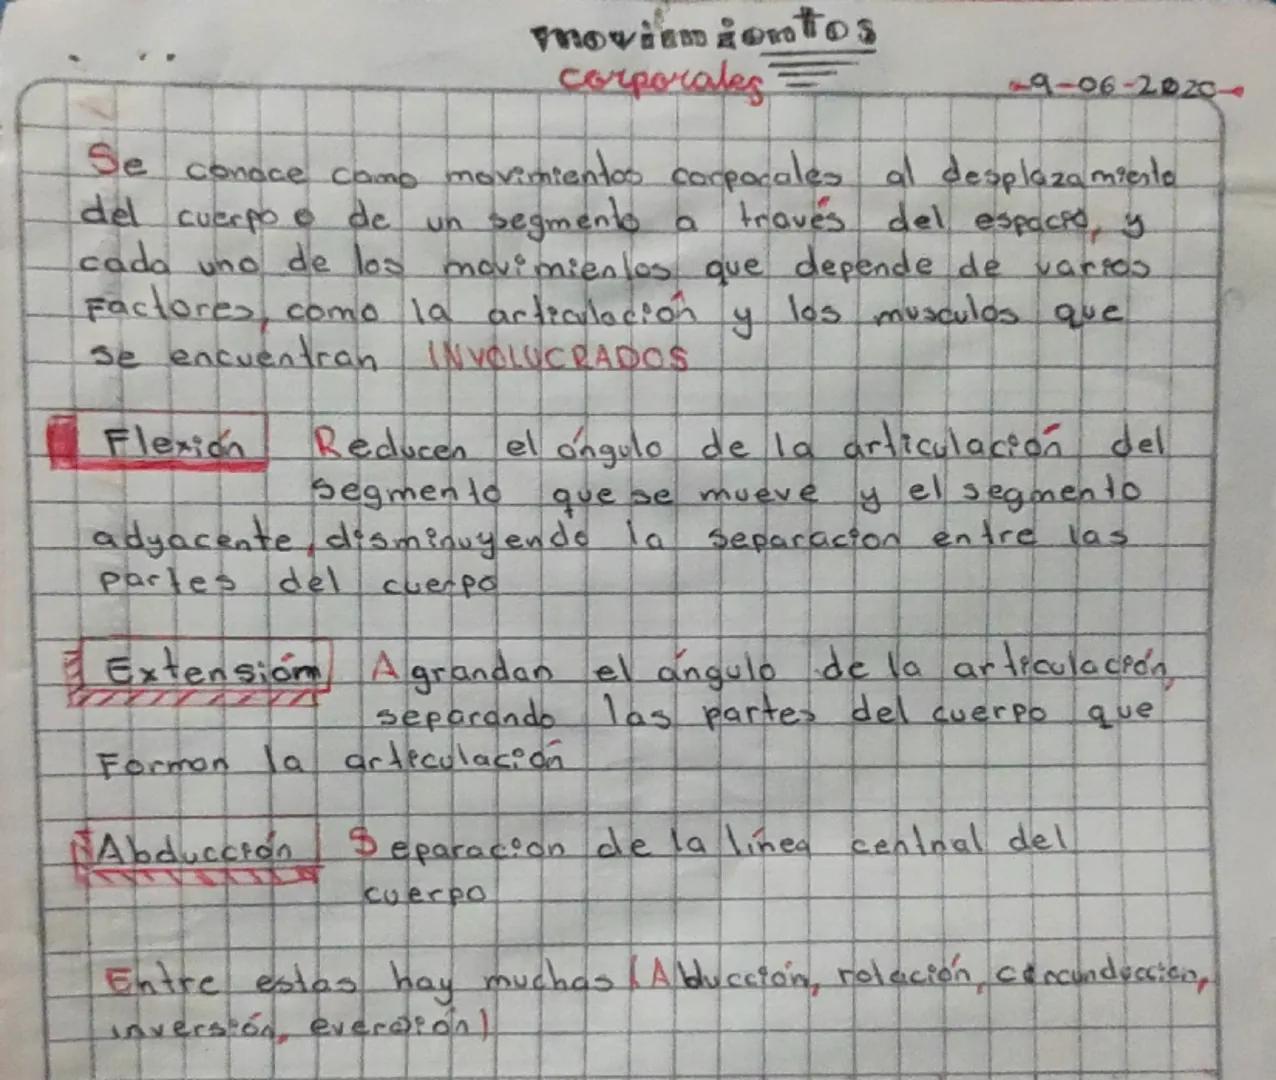 movimientos
corporales
9-06-2020
Se conoce como movimientos corporales al desplazamiento
del cuerpo o de un segmento a través del espacio, y
cada uno de los movimientos que depende de varios
Factores, como la articulación y los musculos que
se encuentran INVOLUCRADOS
Flexión Reducen el ángulo de la articulación del
segmento que se mueve y el segmento
adyacente, disminuyendo la separacion entre las
partes del cuerpo
Extensión Agrandan el ángulo de la articulación,
separando las partes del cuerpo que
Forman la articulación
Abducción Separacion de la línea central del
cuerpo
Entre estas hay muchas (Abducción, rotación, circunduccion,
inversión, eversión)